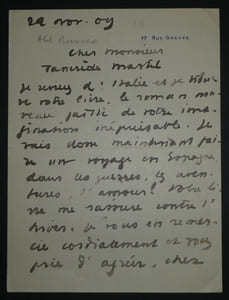 22 nov. 09
Abel Bonnard
17 Rue Greuze
Cher Monsieur
Tancrède Martel
Je reviens d'Italie et je trouve
votre livre, le roman nou-
veau, parti de votre ima-
gination inépuisable. Je
vais donc maintenant fai-
re un voyage en Espagne,
dans les guerres, les aven-
tures, l'amour! Votre li-
vre me rassure contre l'
hiver. Je vous en remer-
cie cordialement et vous
prie d'agréer, cher